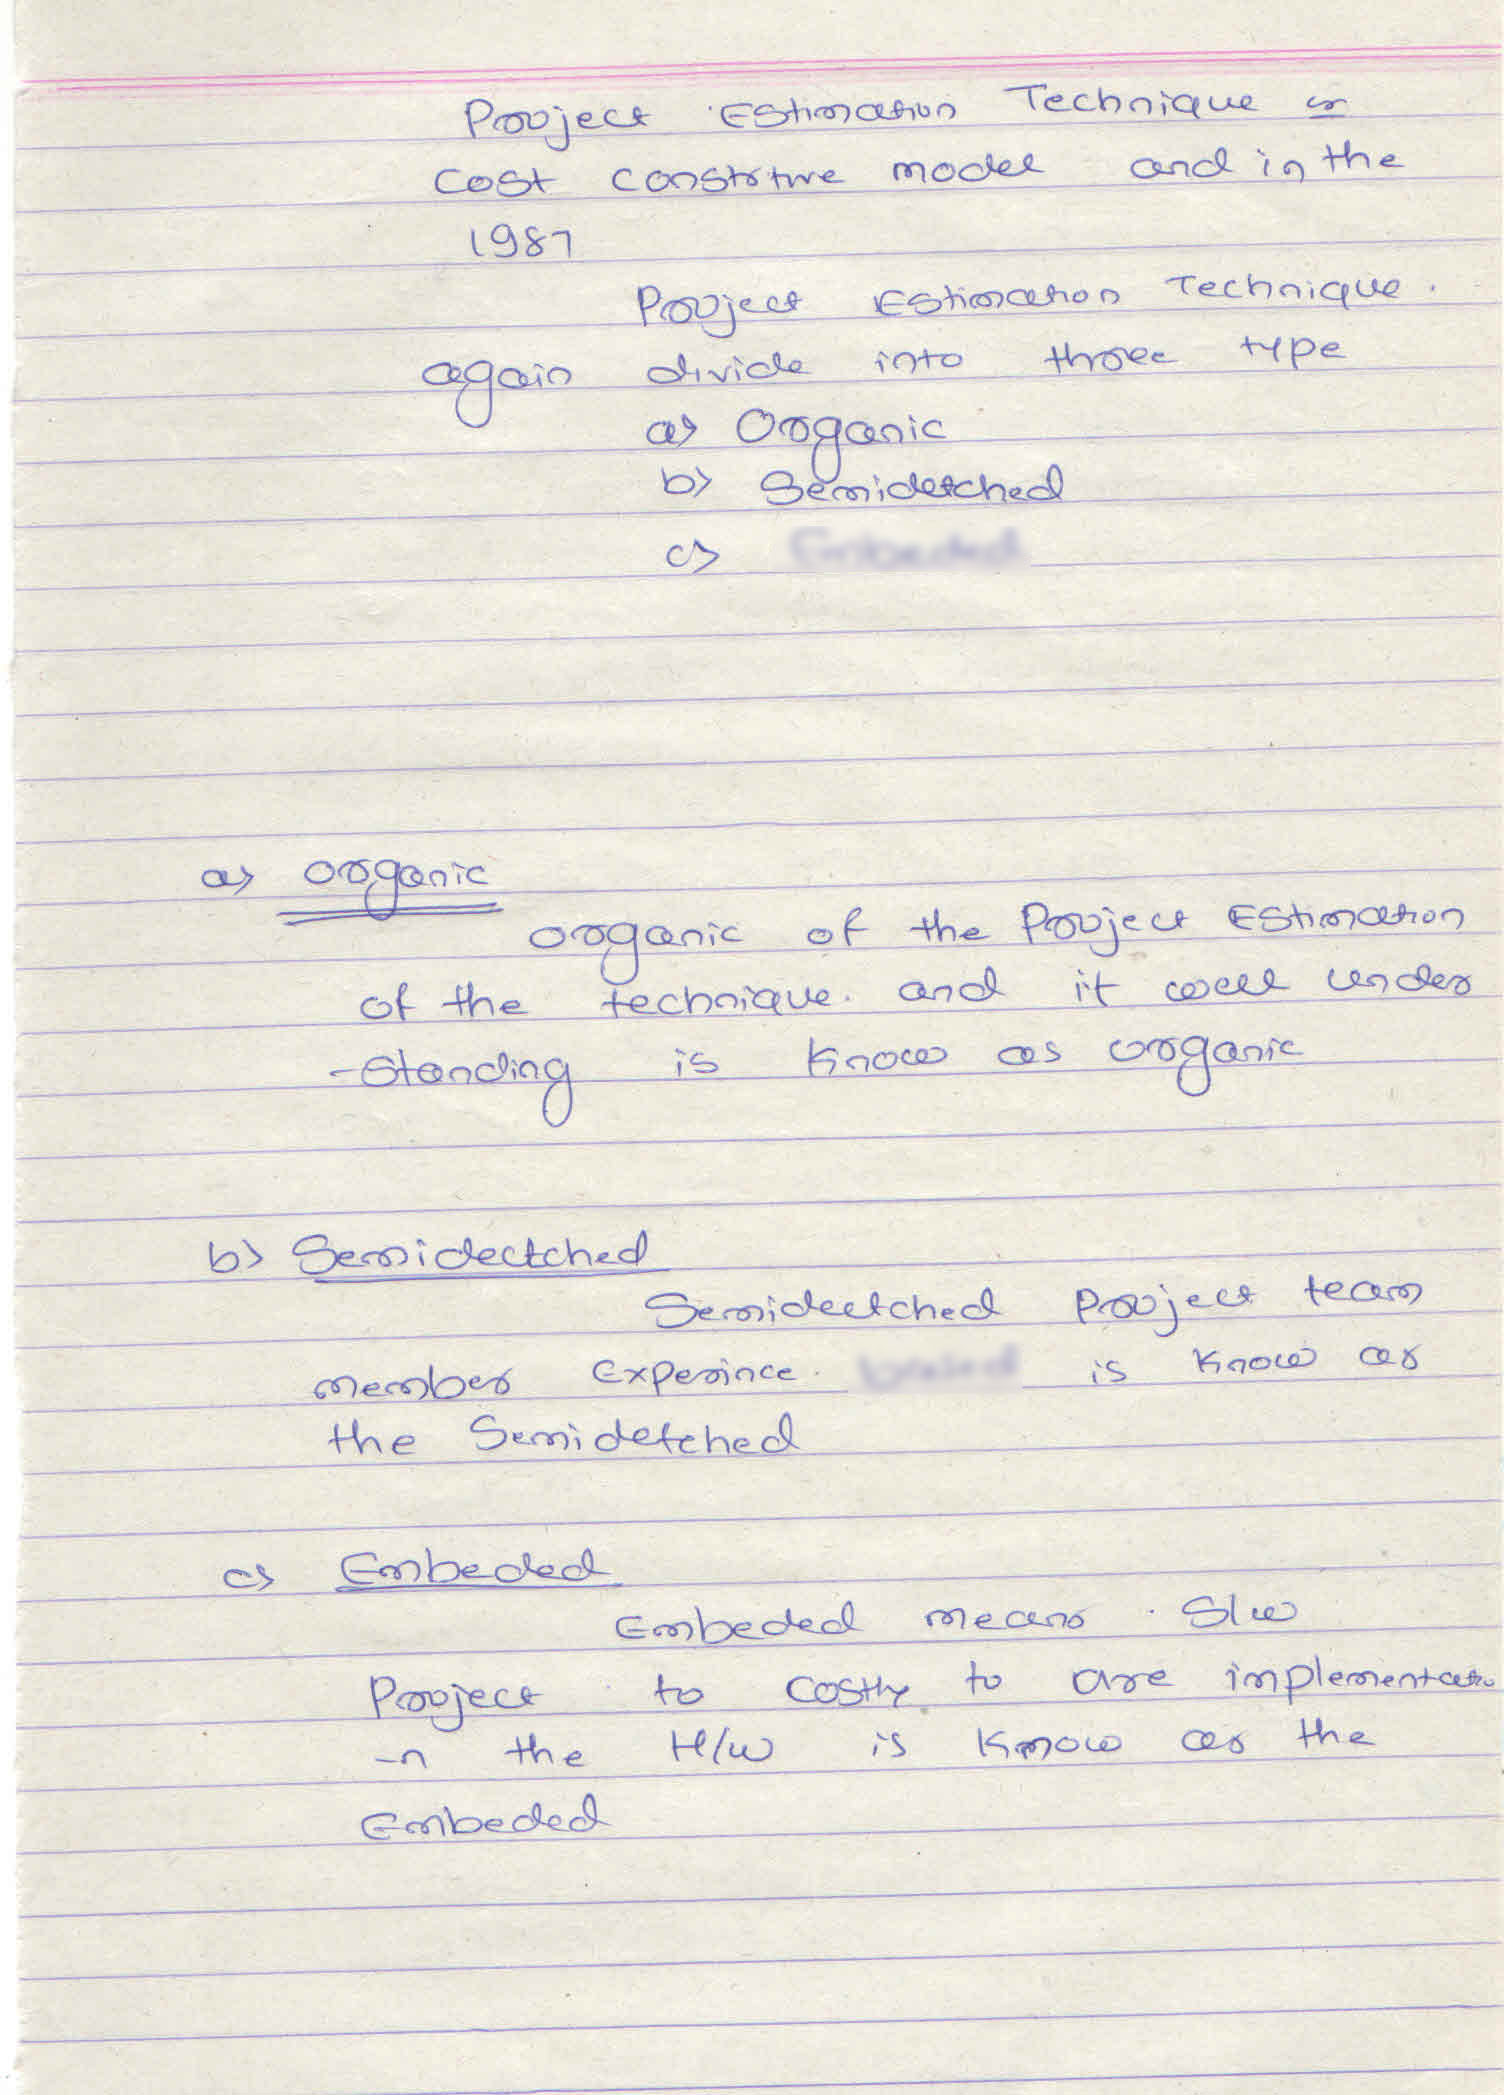 Project Estimation Technique is
cost constrtive model and in the
1987
Project Estimation Technique.
again divide into three type
a) Organic
b) Semidetched
c)
a) organic
organic of the Project Estimation
of the technique. and it well under
-standing is know as organic
b) Semidectched
Semidectched project team
member experince. is know as
the Semidetched
c) Embeded
Embeded means. S/w
Project to costly to are implementatio
-n the H/w is know as the
Embeded